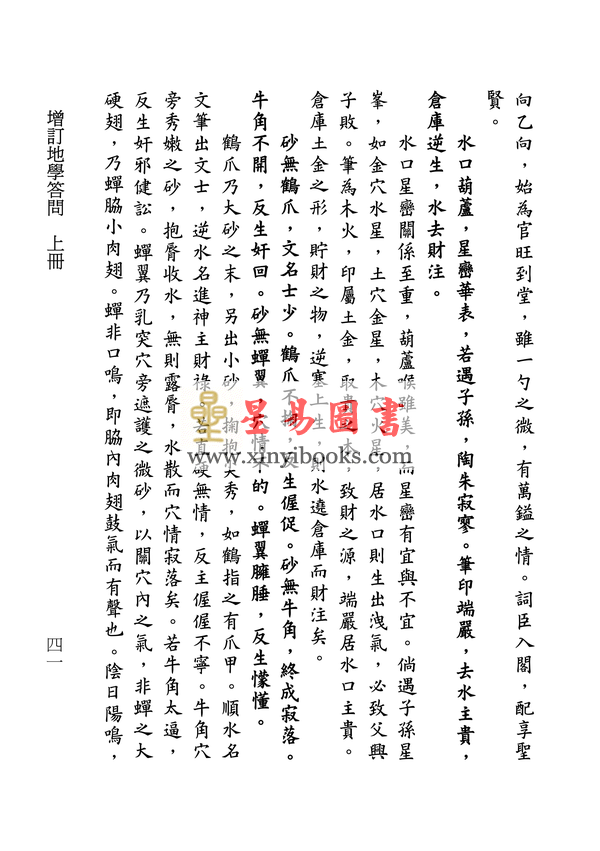 向乙向，始為官旺到堂，雖一勺之微，有萬鎰之情。詞臣入閣，配享聖
賢。
水口葫蘆，星巒華表，若遇子孫，陶朱寂寥。筆印端嚴，去水主貴，
倉庫逆生，水去財注。
水口星巒關係至重，葫蘆喉雖美，而星巒有宜與不宜。倘遇子孫星
峯，如金穴水星，土穴金星，木穴火星，居水口則生出洩氣，必致父興
子敗。筆為木火，印屬土金，取貴之本，致財之源，端嚴居水口主貴。
倉庫土金之形，貯財之物，逆塞上生，則水遶倉庫而財注矣。
砂無鶴爪，文名士少。鶴爪不掬，反生偓促。砂無牛角，終成寂落。
牛角不開，反生奸回。砂無蟬翼，穴情不的。蟬翼臃腫，反生懞懂。
鶴爪乃大砂之末，另出小砂，掬抱尖秀，如鶴指之有爪甲。順水名
文筆出文士，逆水名進神主財祿。若直硬無情，反主偓偓不寧。牛角穴
旁秀嫩之砂，抱唇收水，無則露唇，水散而穴情寂落矣。若牛角太逼，
反生奸邪健訟。蟬翼乃乳突穴旁遮護之微砂，以關穴內之氣，非蟬之大
硬翅，乃蟬脇小肉翅。蟬非口鳴，即脇內肉翅鼓氣而有聲也。陰日陽鳴，
增訂地學答問 上冊
四一
星易圖書
www.xinyibooks.com